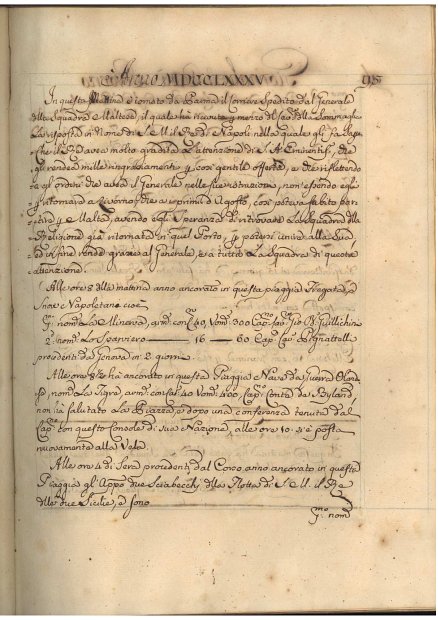 Anno MDCCLXXXV 95
In questa Mattina è tornato da Parma il Corriere Spedito dal Generale
della Squadra Maltese, il quale ha ricevuto p mezzo del
La risposta in Nome di S. M. il Re di Napoli nella quale gli fa sapere
che il Padrone molto gradita L'attenzione di S. A. Eminentiss.
gli rendea mille ringraziamenti p così gentile offerta, e che riflettendo
gli ordini che aveva il Generale nelle sue istruzioni, non essendo egli
p ritornare a Livorno che ai primi d'Agosto, così poteva subito par-
tire p Malta, avendo egli Speranza di ritrovare La Squadra della
Religione già ritornata in quel Porto, p potersi unire alla Sua,
ed infine rende grazie al Generale, e a tutta La Squadra di queste
attenzione.
Alle ore 8 della mattina anno ancorato in questa piaggia Fregata, e
Snow Napoletane cioè
p.ª nom.ª La Minerva, arm. con C. 40, Vom. 300 Cap.
2.ª nom. Lo Sparviero — 16 — 60 Cap. Pignattelli
procedenti da Genova in 2 giorni.
Alle ore 8½ ha ancorato in questa Piaggia Nave da Guerra Olan-
nom.ª La Tigra, arm. con Can. 40 Vom. 400, Cap. Conte de Byland,
non ha salutato La Piazza, e dopo una conferenza tenuta dal
Cap. con questo Console di sua Nazione, alle ore 10 si è posta
nuovamente alla Vela.
Alle ore 4 di Sera procedenti dal Corso anno ancorato in questa
Piaggia gl' due Sciabecchi della Flotta di S. M. il Re
delle due Sicilie, e sono
p.º nom.